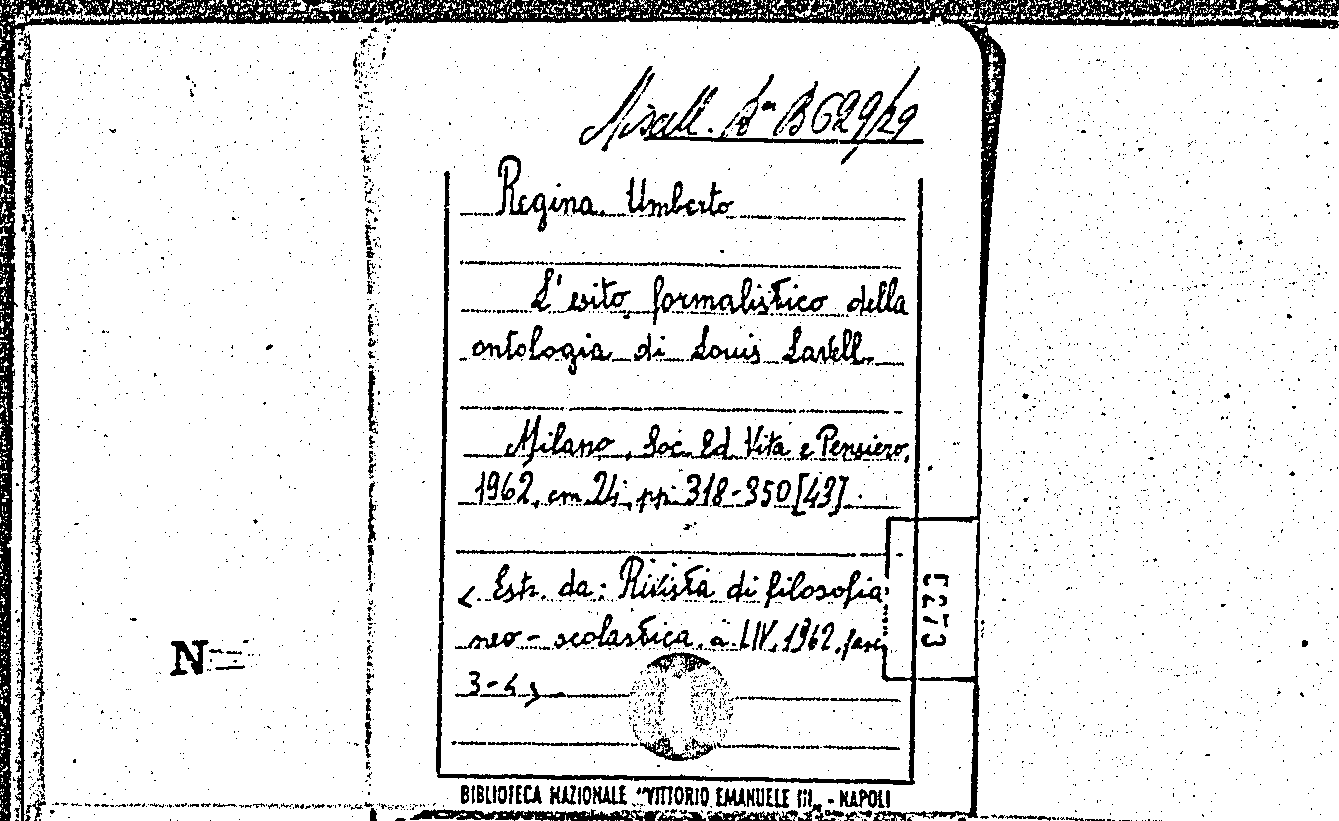 Miscell. Bª B 629/29
Regina Umberto
L'esito formalistico della
ontologia di Louis Lavell.
Milano, Soc. Ed. Vita e Pensiero,
1962, cm. 24, pp. 318-350 [43].
< Estr. da: Rivista di filosofia
neo-scolastica, a. LIV, 1962, fasc.
3-4 >.
5273
N
BIBLIOTECA NAZIONALE "VITTORIO EMANUELE III„ - NAPOLI